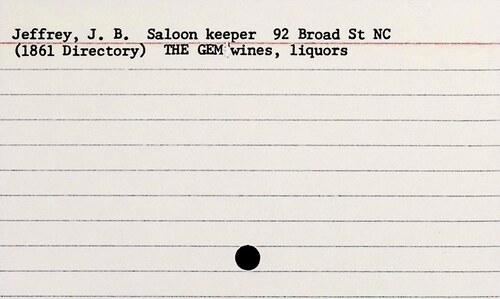 Jeffrey, J. B.  Saloon keeper  92 Broad St NC
(1861 Directory)  THE GEM wines, liquors